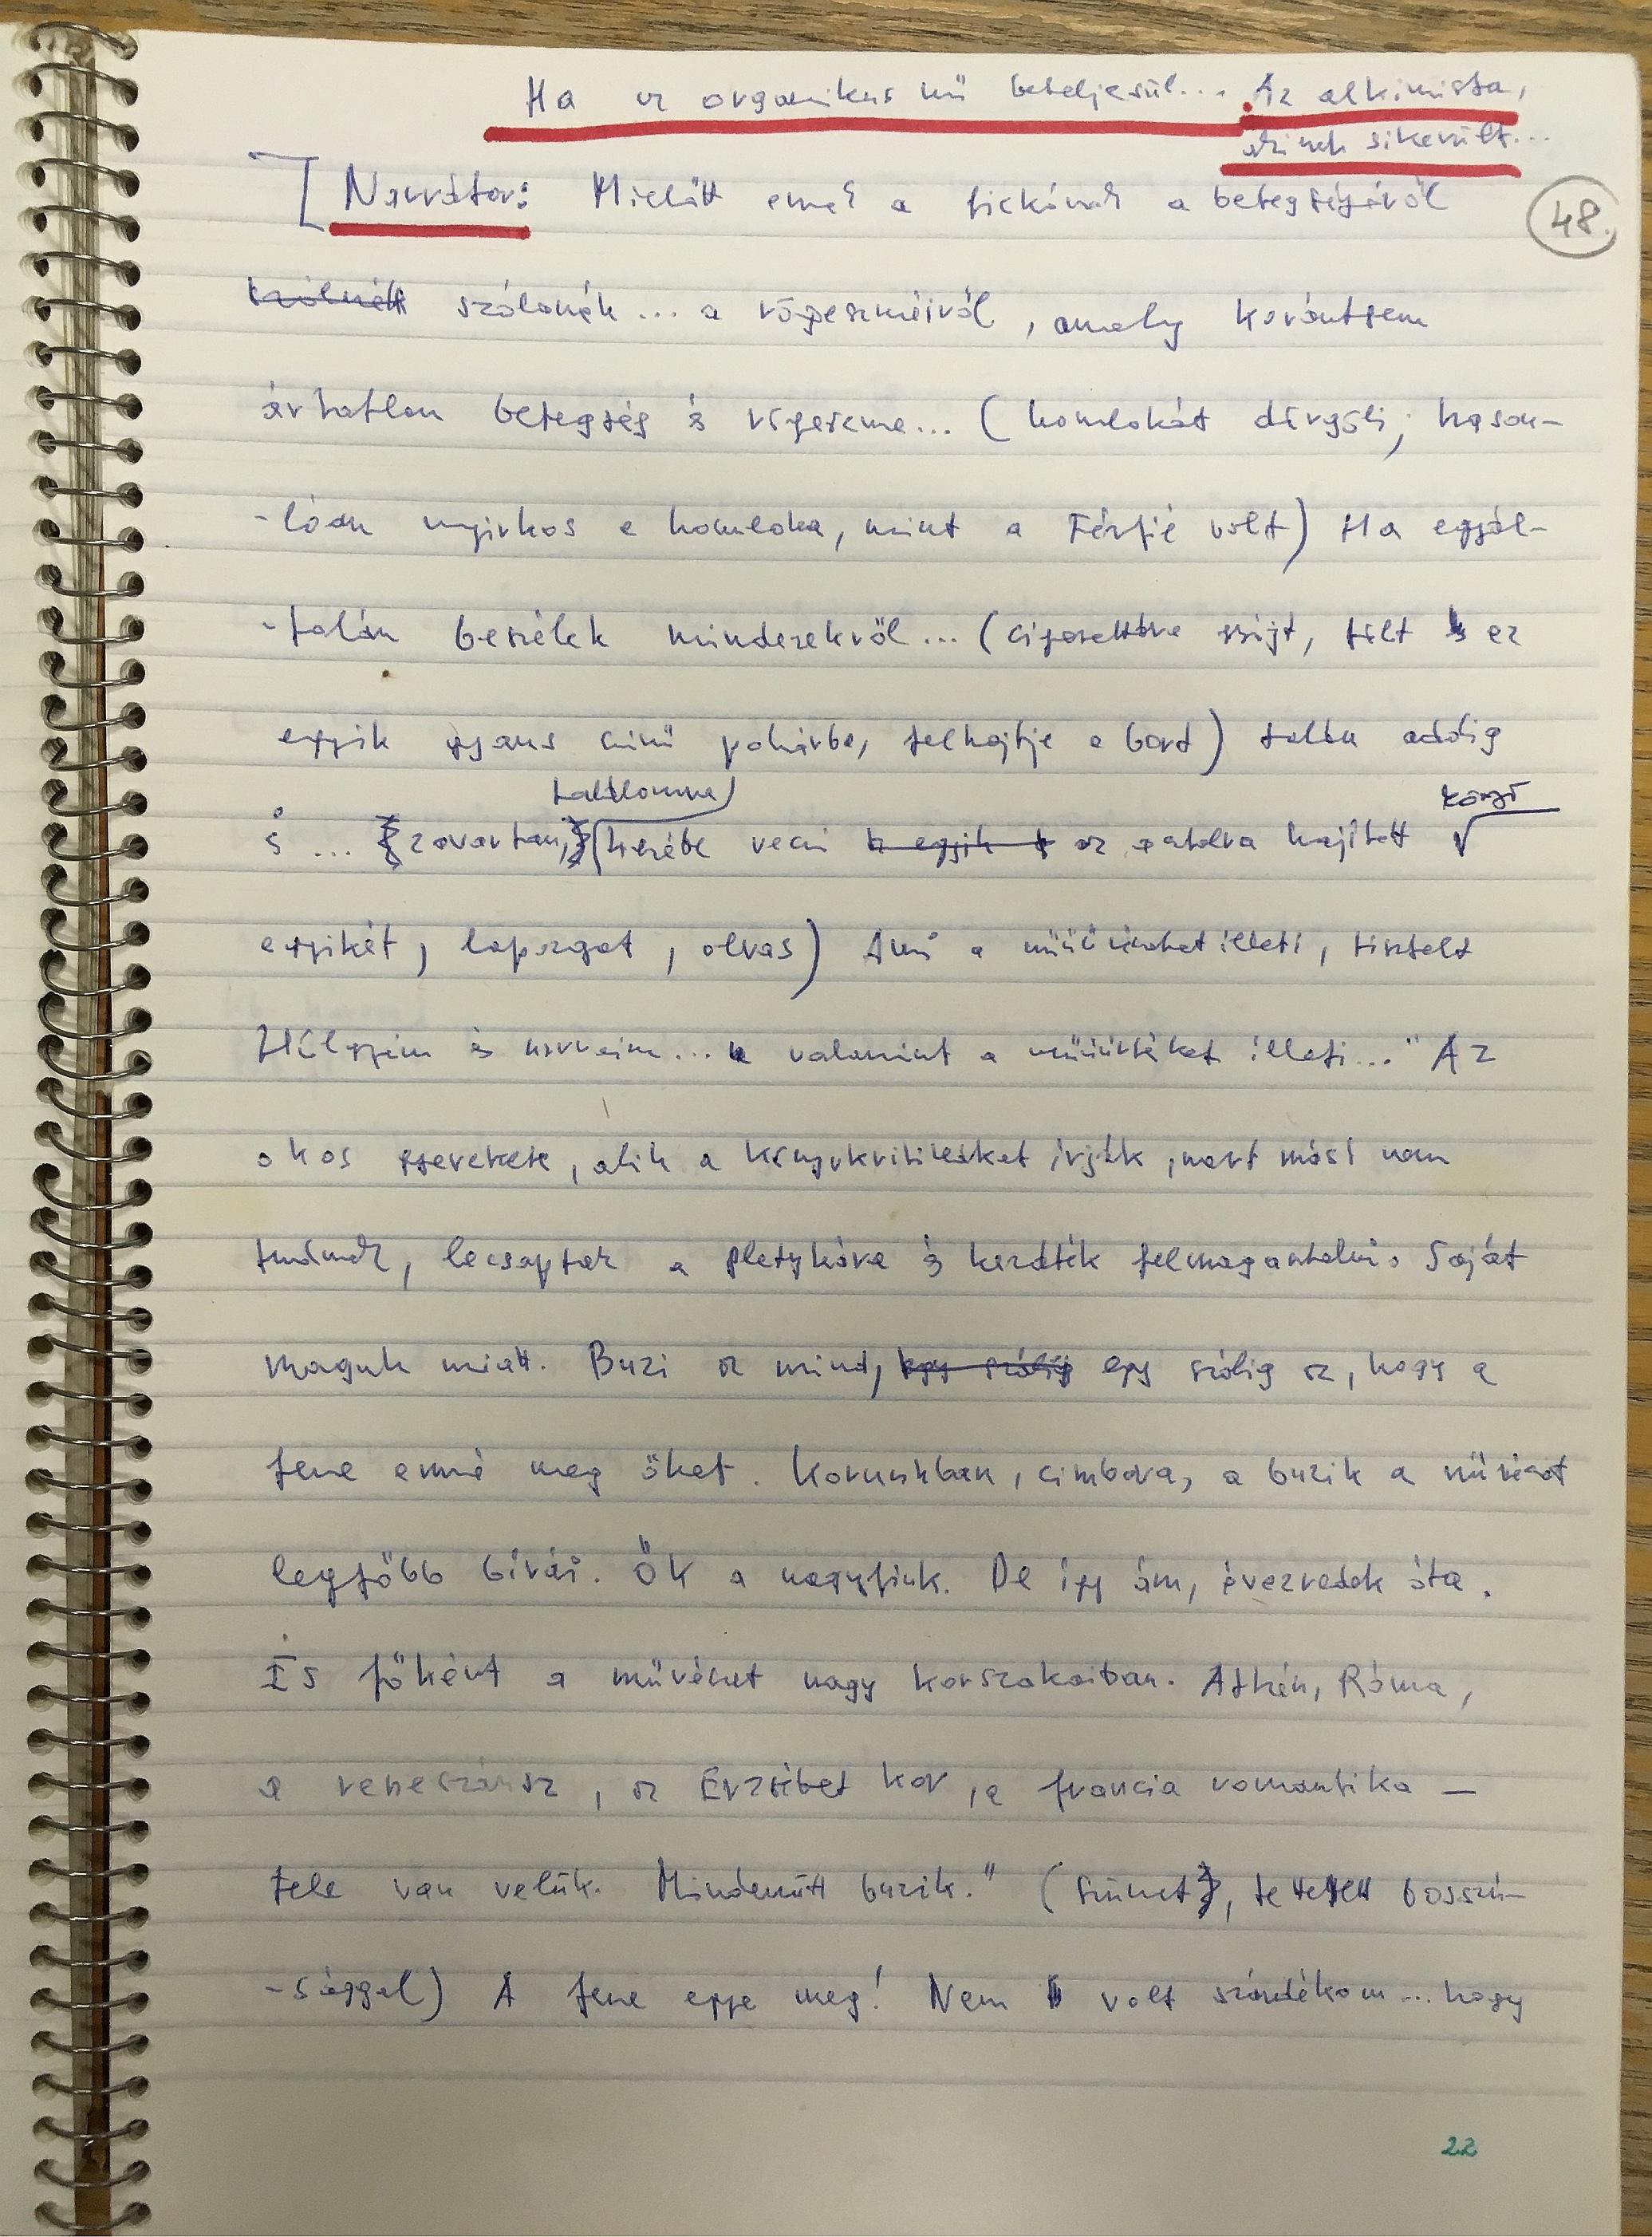 Ha az organikus mű beteljesül... Az alkimista,
akinek sikerült...
Narrátor: Mielőtt ennek a fickónak a betegségéről
48.
szólnék szólanék... a rögeszméiről, amely korántsem
ártatlan betegség és rögeszme... (homlokát dörgöli; hason-
-lóan nyirkos a homloka, mint a Férfié volt) Ha egyál-
-talán beszélek minderekről... (cigarettára gyújt, tölt az
egyik gyanús színű pohárba, felhajtja a bort) talán addig
is... zavartan, kezébe veszi az asztalra hajított
halálomra könyv
egyikét, lapozgat, olvas) Ami a műűűvészetet illeti, tisztelt
Hölgyeim és uraim... valamint a műűűvészeket illeti..." Az
okos gyerekek, akik a könyvkritikákat írják, mert mást nem
tudnak, lecsaptak a pletykára és kezdték felmagasztalni. Saját
maguk miatt. Buzi az mind, egy szálig egy szálig az, hogy a
fene enné meg őket. Korunkban, cimbora, a buzik a művészet
legfőbb bírái. Ők a nagyfiúk. De így ám, évezredek óta.
És főként a művészet nagy korszakaiban. Athén, Róma,
a reneszánsz, az Erzsébet kor, a francia romantika —
tele van velük. Mindenütt buzik." (Szünet, tettetett bosszú-
-sággal) A fene egye meg! Nem volt szándékom... hogy
22